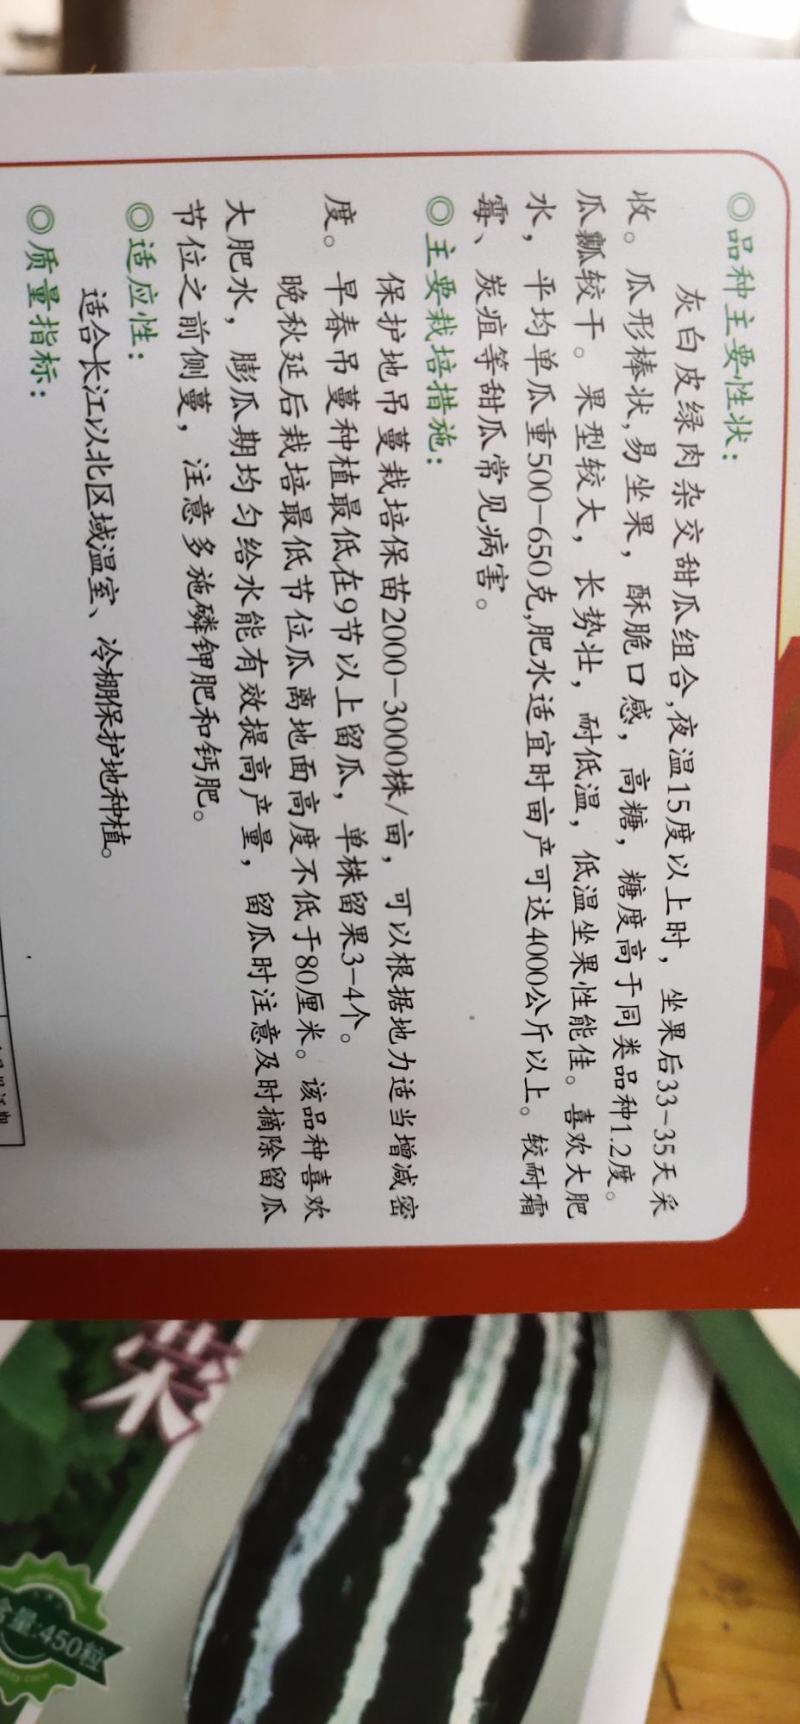 ◎品种主要性状：
灰白皮绿肉杂交甜瓜组合,夜温15度以上时，坐果后33-35天采
收。瓜形棒状,易坐果，酥脆口感，高糖，糖度高于同类品种1.2度。
瓜瓤较干。果型较大，长势壮，耐低温，低温坐果性能佳。喜欢大肥
水，平均单瓜重500-650克,肥水适宜时亩产可达4000公斤以上。较耐霜
霉、炭疽等甜瓜常见病害。
◎主要栽培措施：
保护地吊蔓栽培保苗2000-3000株/亩，可以根据地力适当增减密
度。早春吊蔓种植最低在9节以上留瓜，单株留果3-4个。
晚秋延后栽培最低节位瓜离地面高度不低于80厘米。该品种喜欢
大肥水，膨瓜期均匀给水能有效提高产量，留瓜时注意及时摘除留瓜
节位之前侧蔓，注意多施磷钾肥和钙肥。
◎适应性：
适合长江以北区域温室、冷棚保护地种植。
◎质量指标：
含量:450粒